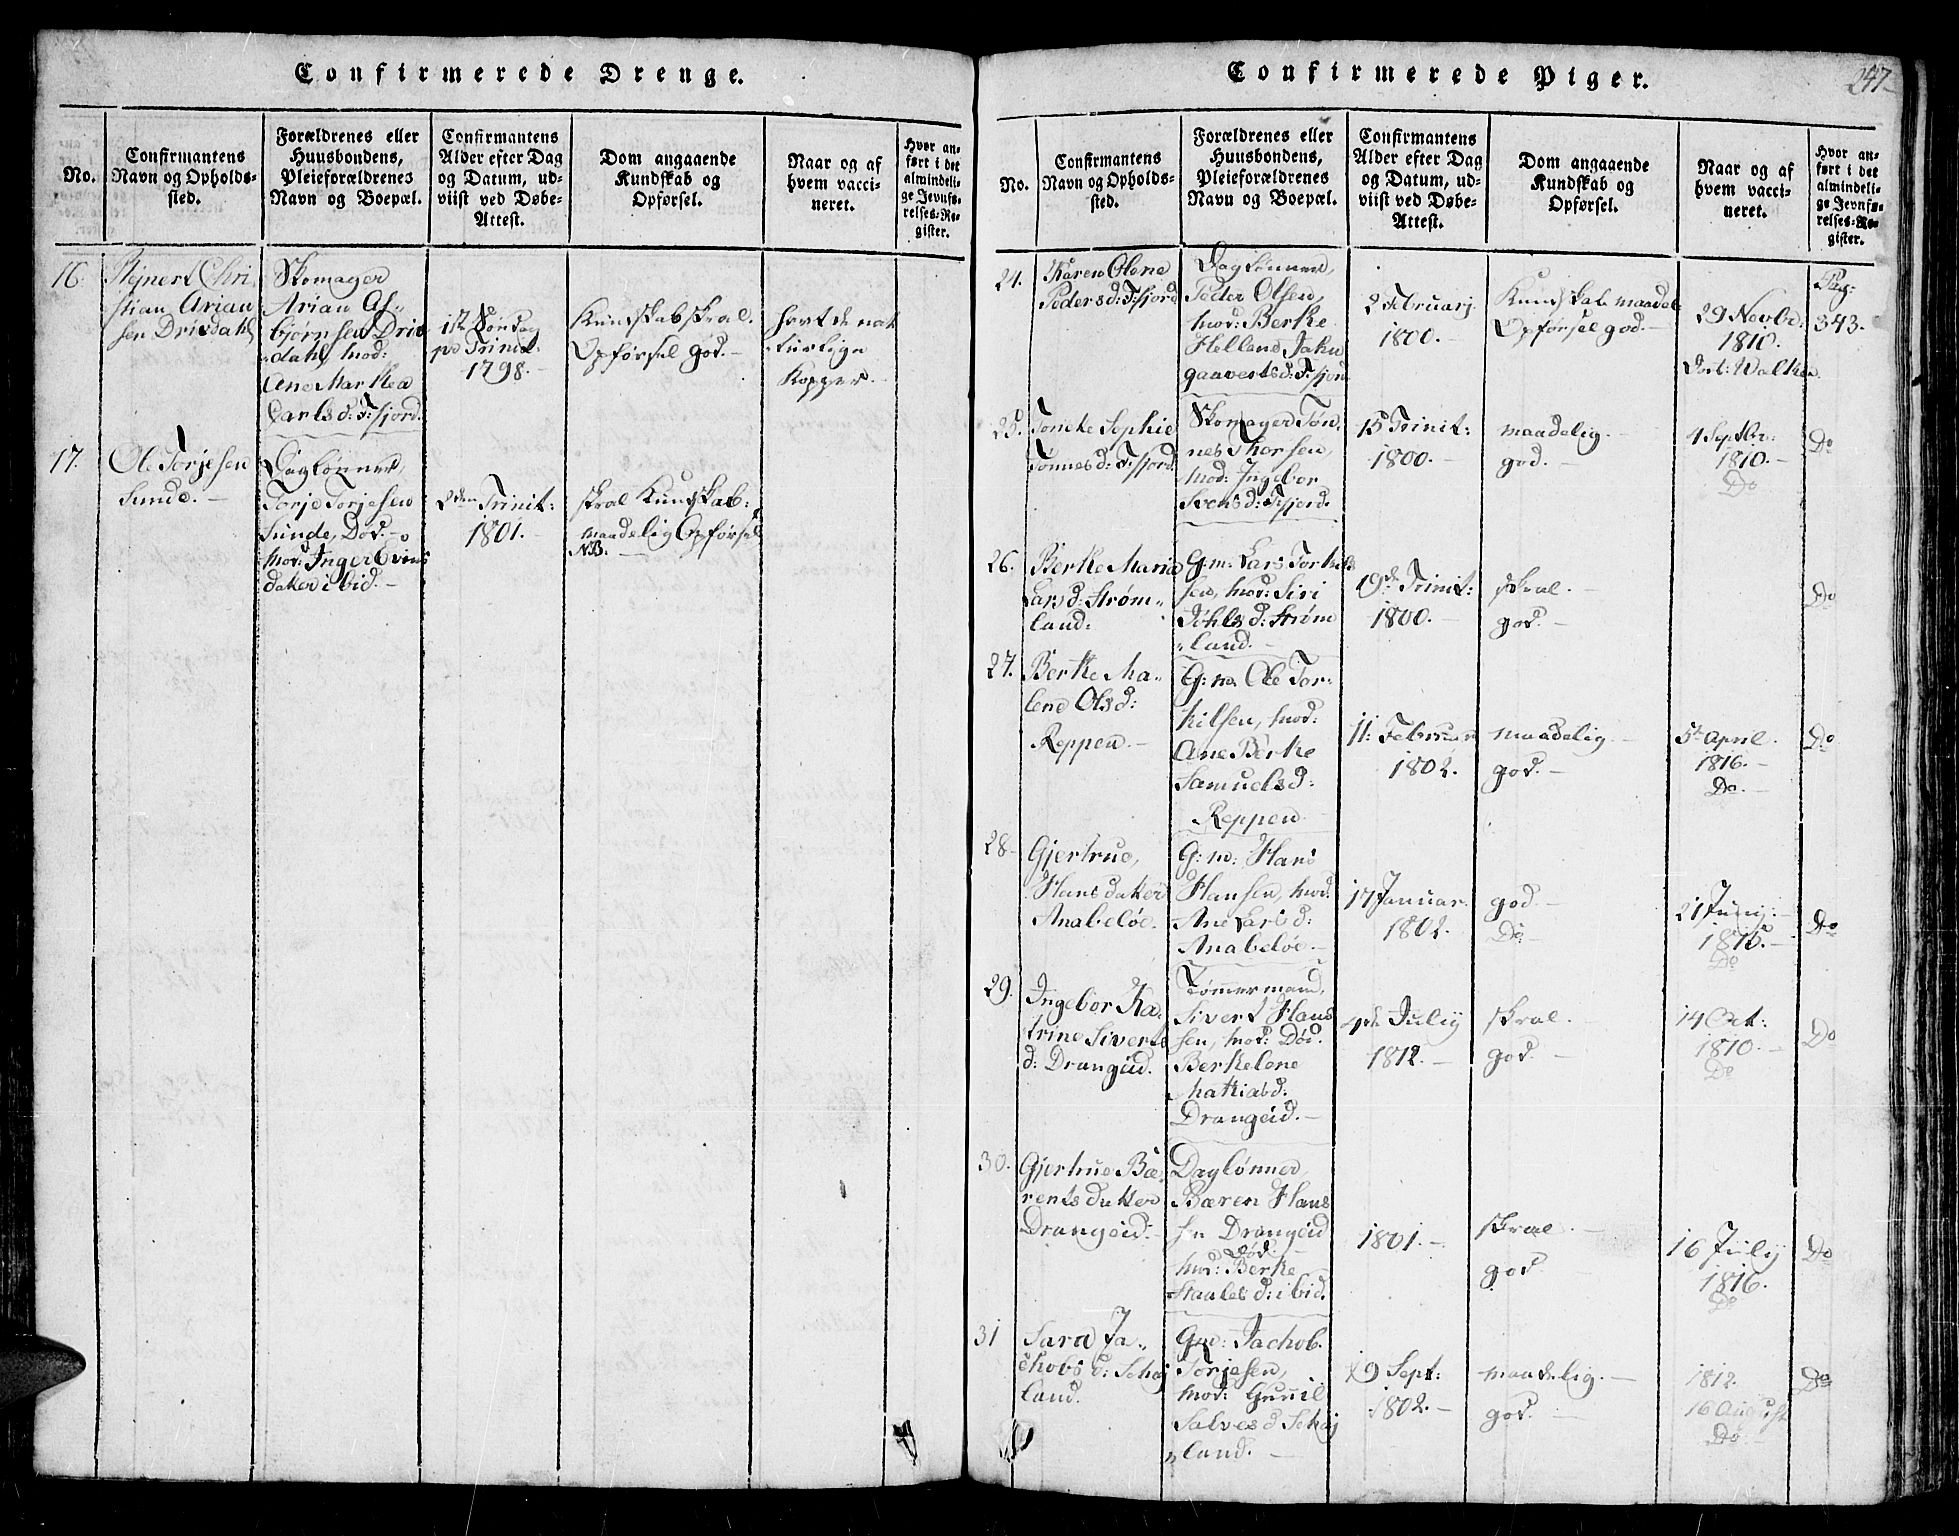 Confirmerede Drenge.
No.
Confirmantens
Navn og Opholds-
sted.
Forældrenes eller
Huusbondens,
Pleieforældrenes
Navn og Boepæl.
Confirmantens
Alder efter Dag
og Datum, ud-
viist ved Døbe-
Attest.
Dom angaaende
Kundskab og
Opførsel.
Naar og af
hvem vacci-
neret.
Hvor an-
ført i det
almindeli-
ge Jevnfø-
relses-Re-
gister.
16.
Rejnert Chri
stian Arian
sen Drisdahl
Skomager
Arian As-
bjørnsen Dris
dahl, mod:
Ane Marthea
Carlsd: F:fjord.
17de Søndag
p: Trinit:
1798.-
Kundskab skral.
Opførsel god.-
havt de nat
turlige
Kopper.
17.
Ole Torjesen
Sunde.-
Daglønner,
Torje Torjesen
Sunde, Død.-
mod: Inger Evens
datter ibid.-
2den Trinit:
1801.-
skral Kundskab:
maadelig Opførsel
NB:
Confirmerede Piger.
247
No.
Confirmantens
Navn og Opholds-
sted.
Forældrenes eller
Huusbondens,
Pleieforældrenes
Navn og Boepæl.
Confirmantens
Alder efter Dag
og Datum, ud-
viist ved Døbe-
Attest.
Dom angaaende
Kundskab og
Opførsel.
Naar og af
hvem vacci-
neret.
Hvor an-
ført i det
almindeli-
ge Jevnfø-
relses-Re-
gister.
24.
Karen Olene
Pedersd: F:fjord
Daglønner,
Peder Olsen,
mod: Berte
Helland Jahn
gaavertsd: F:fjord
2 Februarj
1800.-
Kundskab maadel
Opførsel god.-
29 Novbr:
1810.
Doct: Walker.
Pag:
343.
25.
Tomine Sophie
Tønnesd: F:fjord.
Skomager Tøn
nes Thorsen,
mod: Ingebor
Svensd: F:fjord.
15 Trinit:
1800.-
maadelig.-
god.-
4 Septbr:
1810.-
Do
Do
26.
Berte Maria
Larsd: Strøm-
land:
G:m: Lars Torkils
sen, mod: Siri
Kjhlsd: Strøm
land.-
19de Trinit:
1800.-
skral.-
god.-
Do
27.
Berte Ma-
lene Olsd:
Reppen.-
G:m. Ole Tor-
kilsen, mod:
Ane Berte
Samuelsd:
Reppen.
11: Februar
1802.
maadelig.-
god.-
5t April.
1816.-
Do.-
Do
28.
Gjertrue,
Hansdatter
Anabeløe.
G:m: Hans
Hansen, mod:
Ane Larsd:
Anabeløe.-
17 Januar.
1802.-
god.-
Do
21 Junij.-
1816.-
Do
Do
29.
Ingebor Ka-
trine Siverts
d: Drangeid.
Tømmermand,
Sivert Hans
sen, mod: Død.
Berte Lene
Mathiasd:
Drangeid.-
4de Julij
1812.-
skral.-
god.-
14 Oct:
1810.-
Do
Do
30.
Gjertrue Bæ-
rentsdatter
Drangeid.-
Daglønner,
Bæren Hans
sen Drangeid
Død.
mod: Berte
Staalesd: ibid.
1801.-
skral.-
god.
16 Julij
1816.
Do
Do
31
Sara Ja-
chobsd: Schøj
land.
Gm: Jachob.
Torjesen,
mod: Gunnil
Salvesd Schøj
land.-
19 Sept:
1802.-
maadelig.-
god.-
1812.
16 August
Do.-
Do